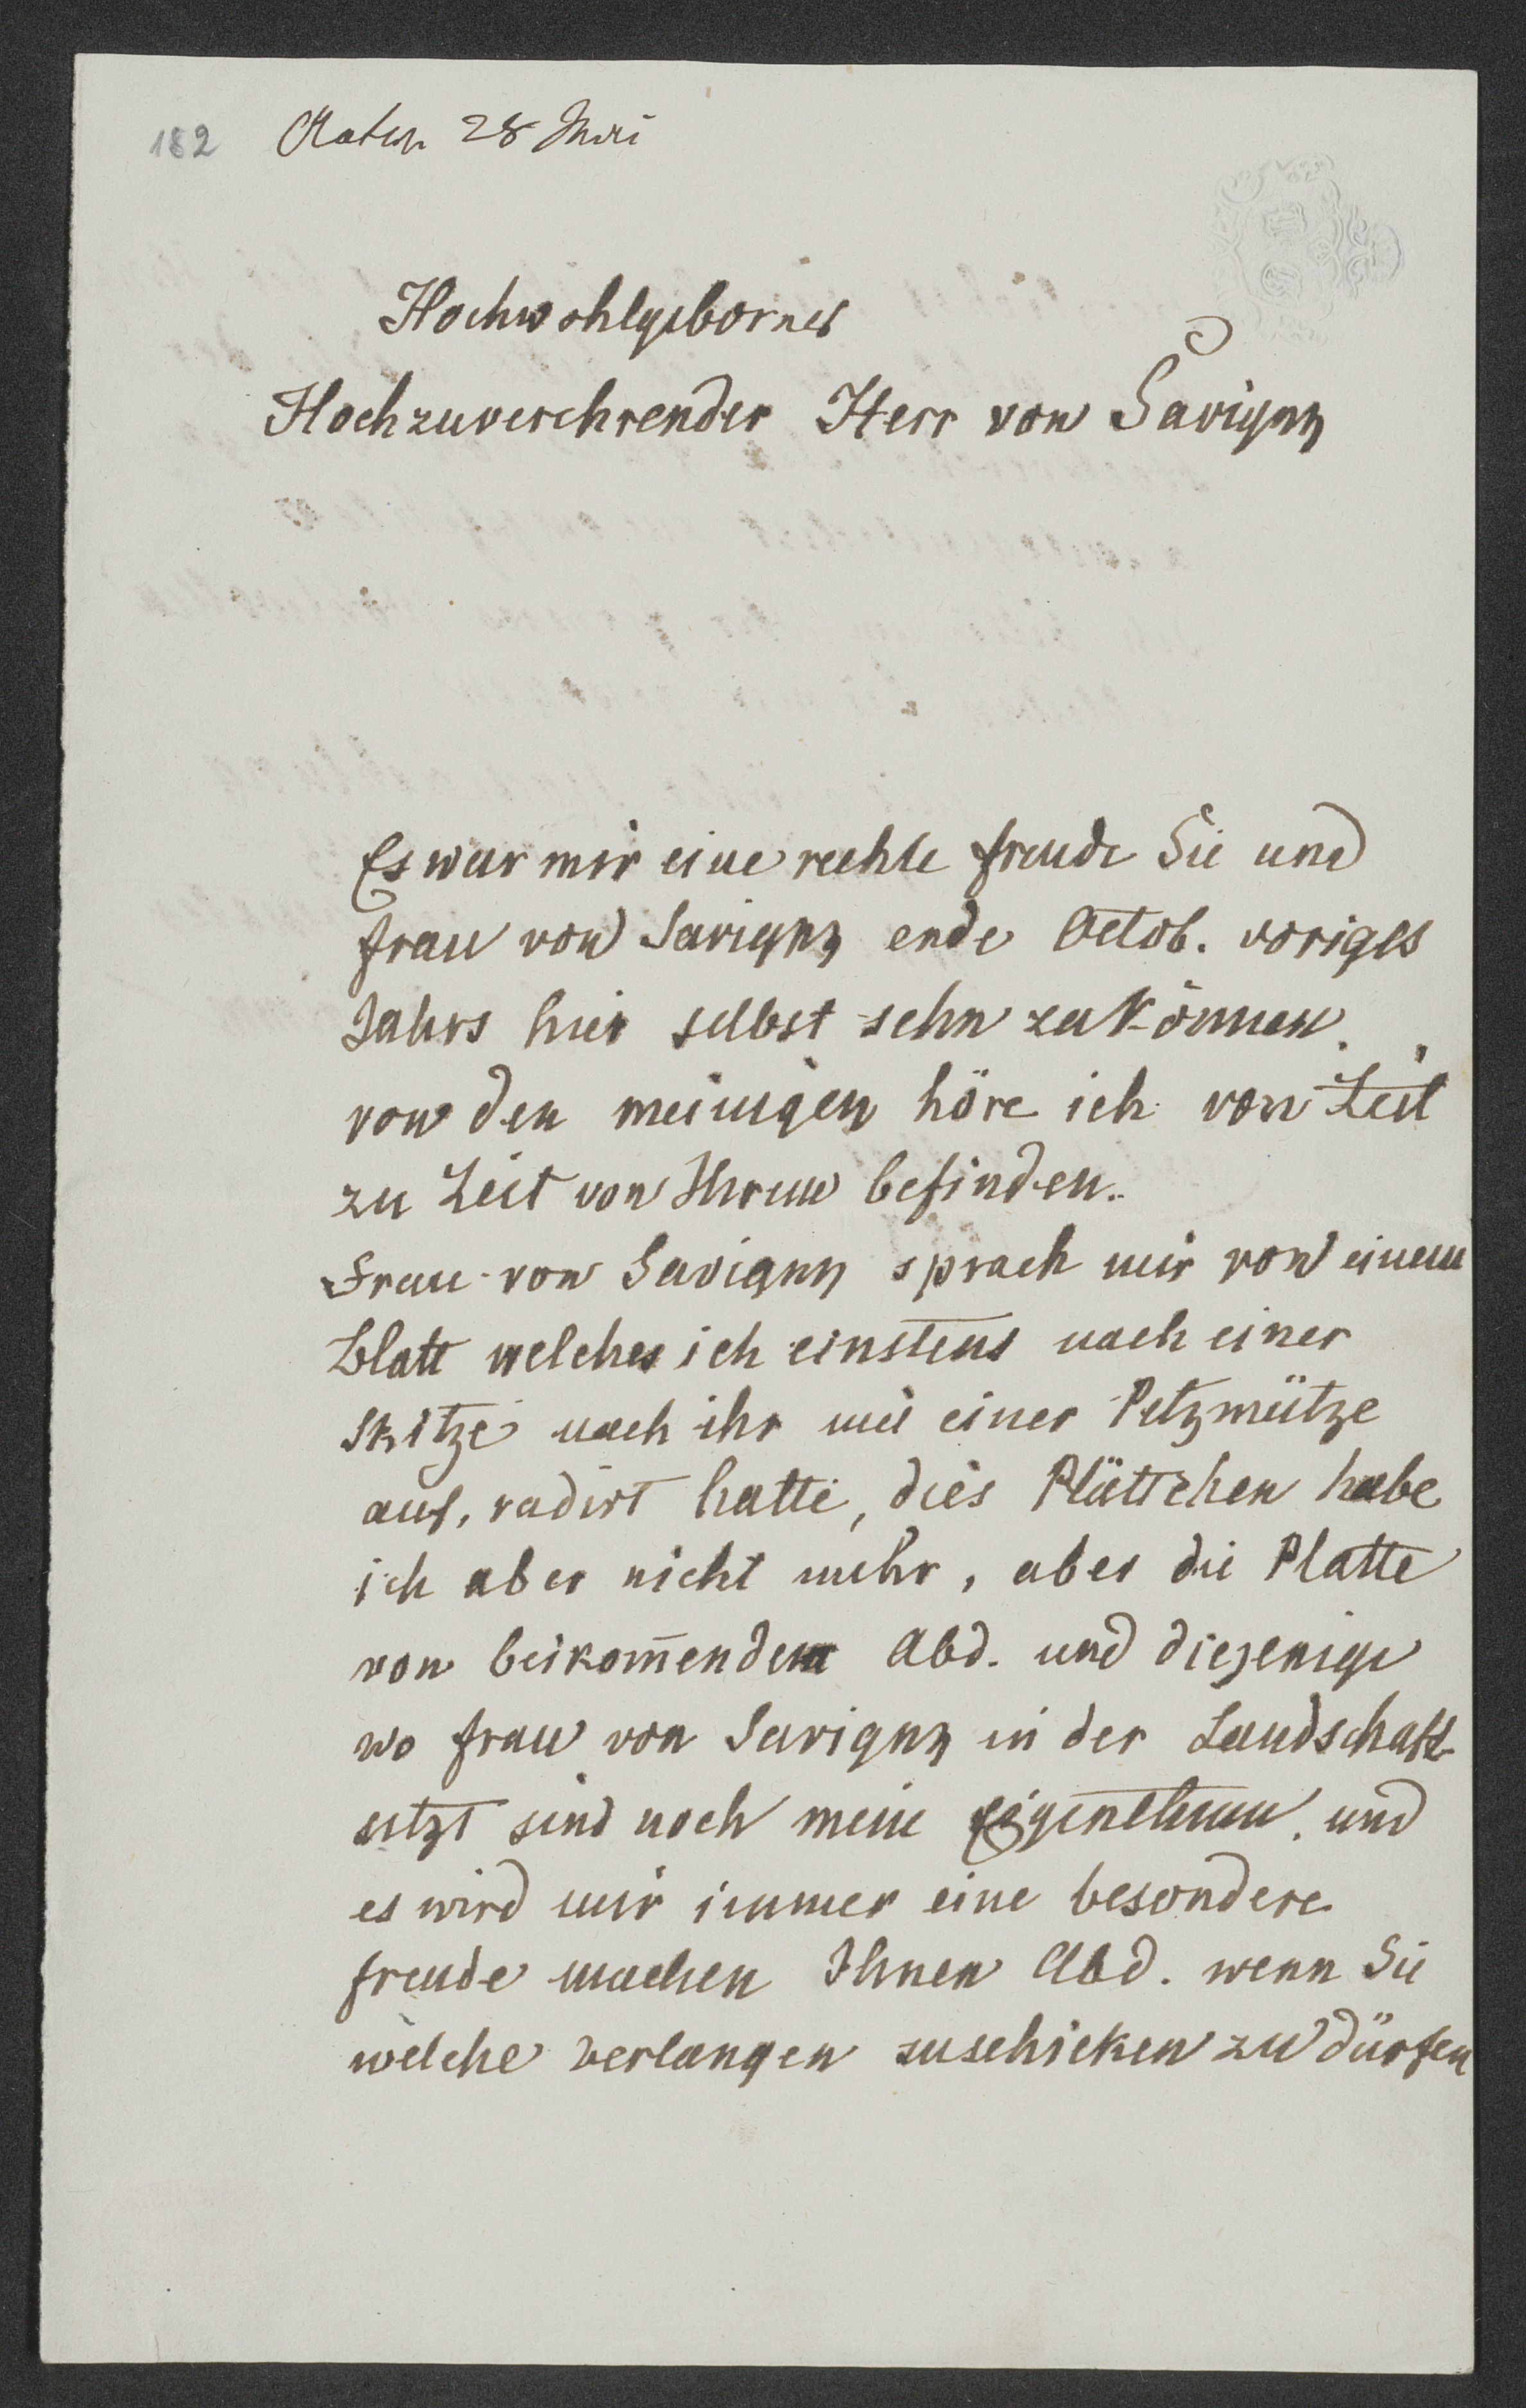 182 28 Juni
Hochwohlgeborner
Hochzuverehrender Herr von Savigny
Es war mir eine rechte freude Sie und
frau von Savigny ende Octob. voriges
Jahrs hier selbst sehn zu können.
von den meinigen höre ich von Zeit
zu Zeit von Ihrem befinden.
Frau von Savigny sprach mir von einem
Blatt welches ich einstens nach einer
Skitze nach ihr mit einer Pelzmütze
auf, radirt hatte, dies Plättchen habe
ich aber nicht mehr, aber die Platte
von beikom̄enden Abd. und diejenige
wo frau von Savigny in der Landschaft
sitzt sind noch mein Eigenthum. und
es wird mir immer eine besondere
freude machen Ihnen Abd. wenn Sie
welche verlangen zuschicken zu dürfen